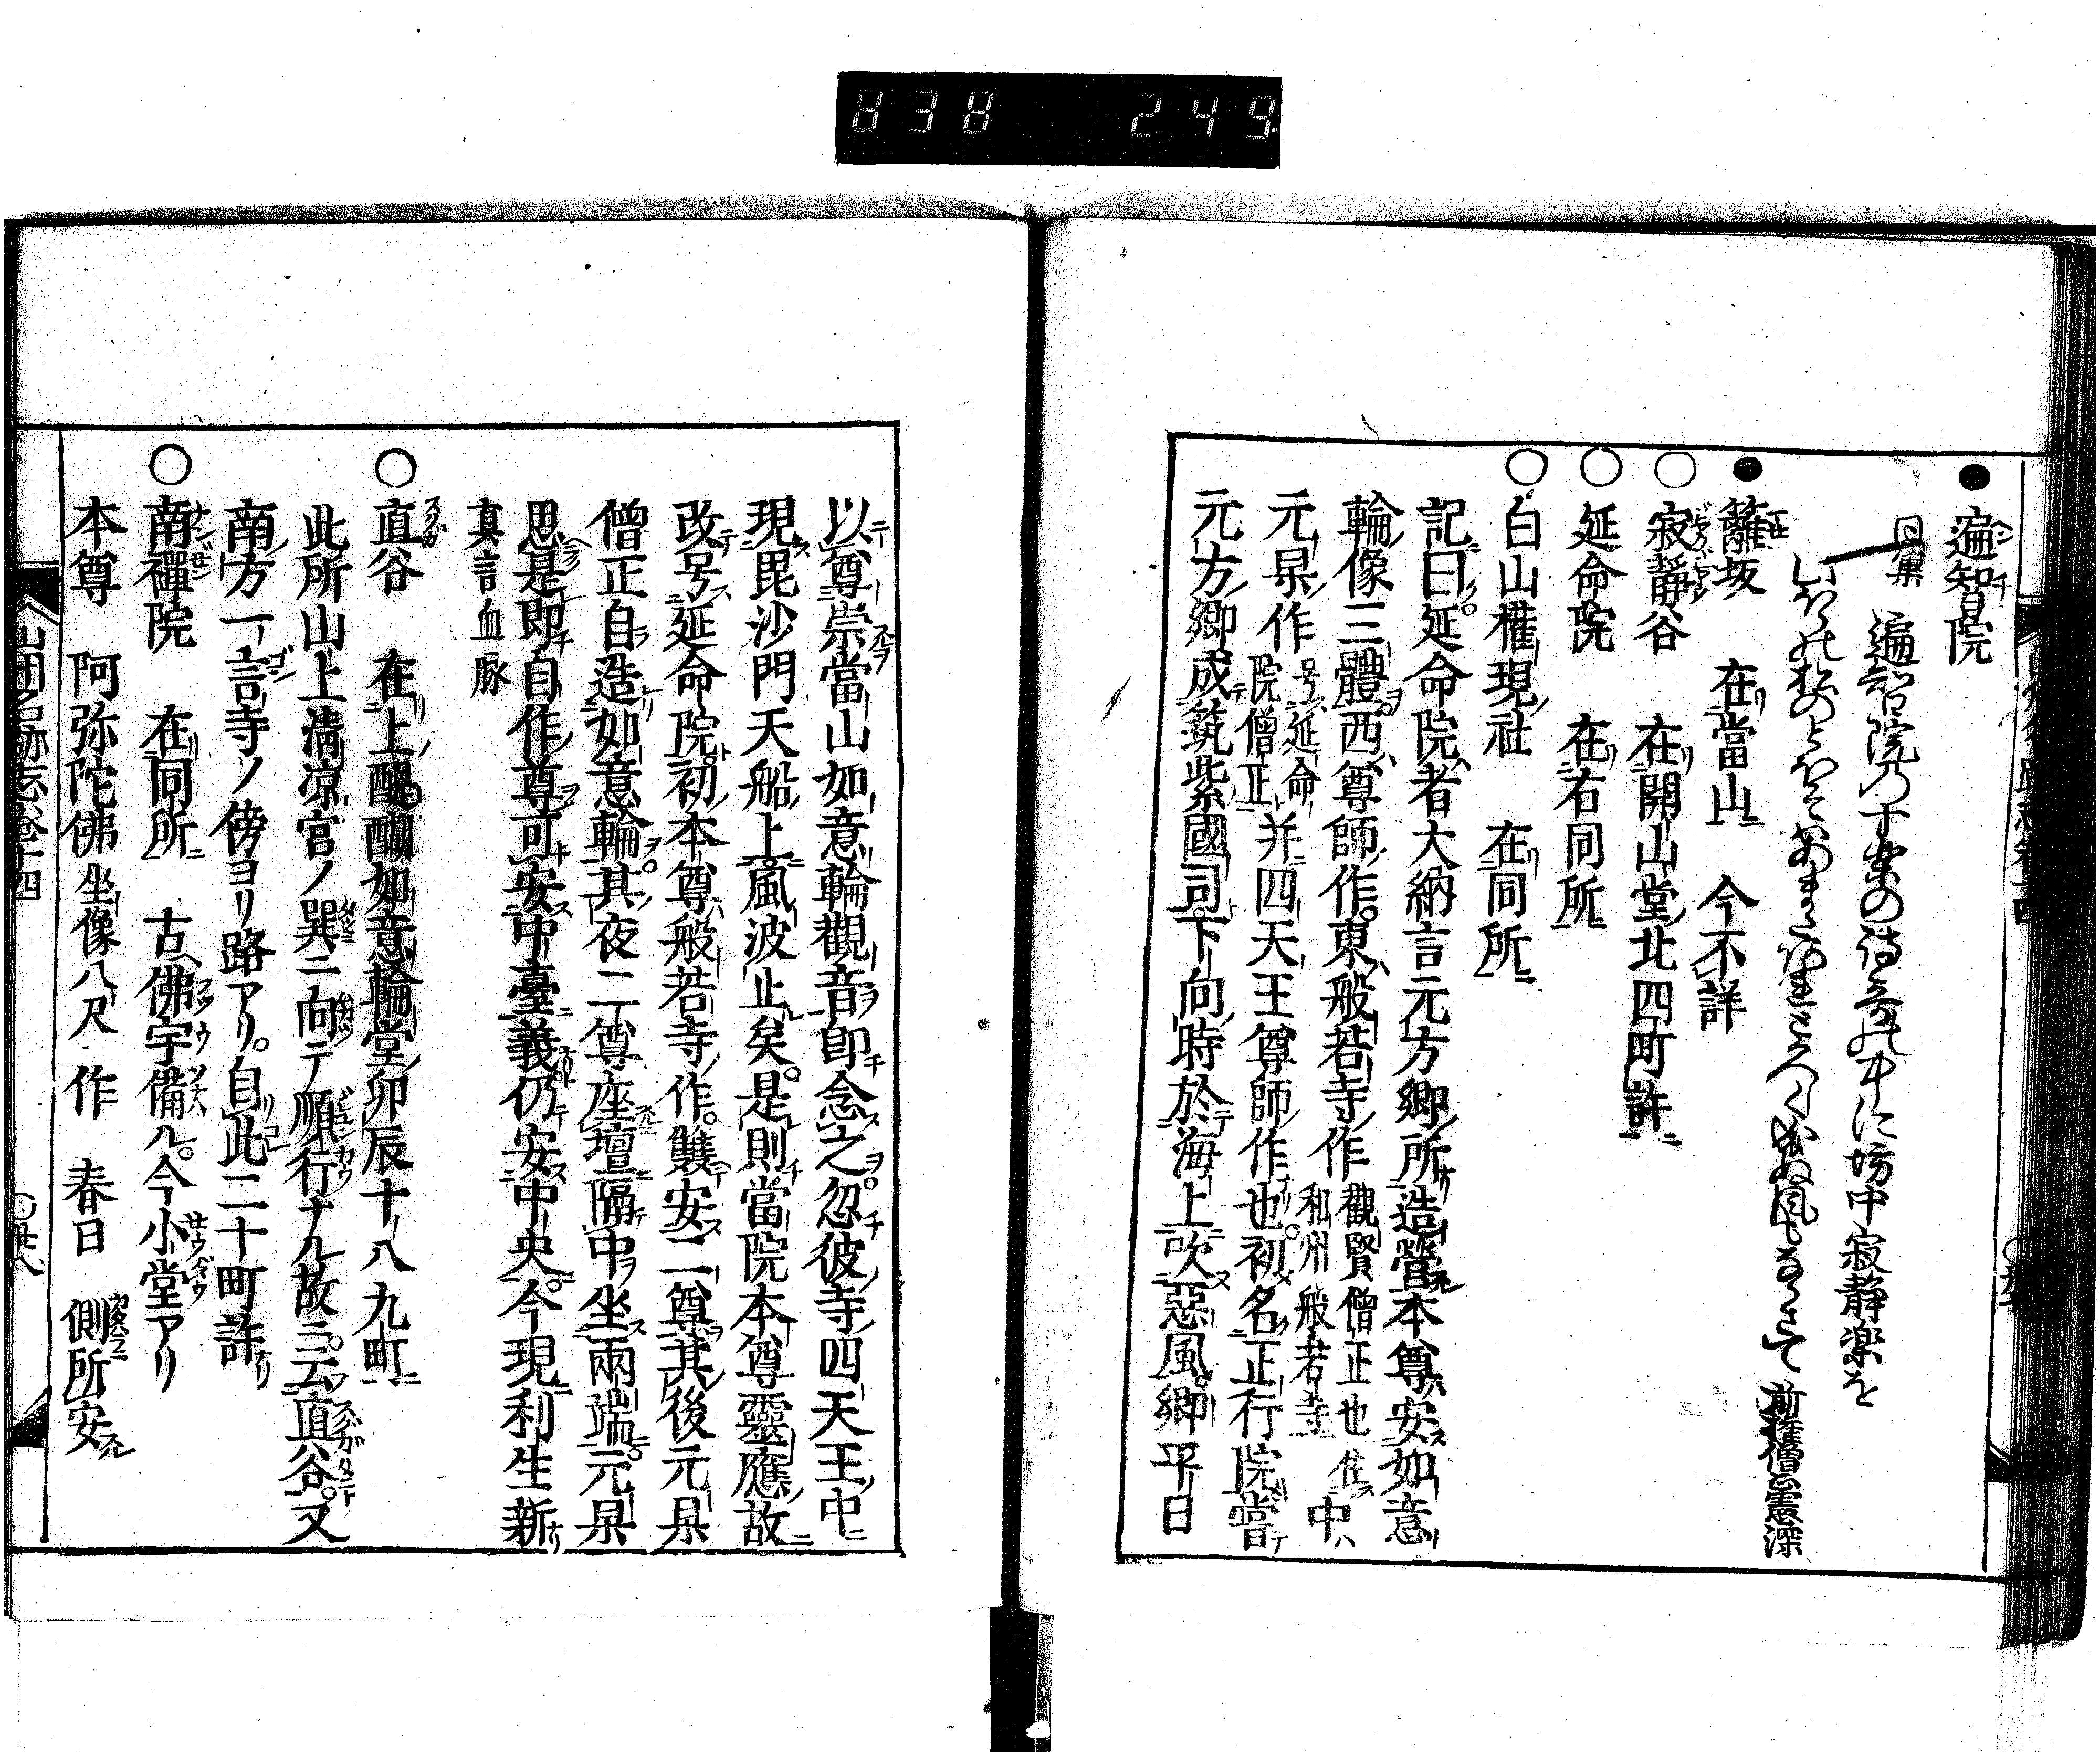 838 249
●遍智院
同集 遍智院の十楽の詩哥の中に坊中寂静楽を
前権僧正憲深
●籬坂 在當山 今不詳
○寂靜谷 在開山堂北四町許
○延命院 在右同所
○白山權現社 在同所
記曰延命院者大納言元方卿所造營本尊安如意
輪像三體西尊師作東般若寺作 觀賢僧正也住和州般若寺 中
元杲作 号延命院僧正 并四天王尊師作也初名正行院嘗
元方卿成筑紫國司下向時於海上吹惡風卿平日
以尊崇當山如意輪觀音即念之忽彼寺四天王中
現毘沙門天船上風波止矣是則當院本尊靈應故
改号延命院初本尊般若寺作雙安二尊其後元杲
僧正自造如意輪其夜二尊座壇隔中坐兩端元杲
思是即自作尊可安中臺義仍安中央今現利生新
真言血脉
○直谷 在上醍醐如意輪堂卯辰十八九町
此所山上清凉宮ノ巽ニ向テ順行ナル故ニ云直谷又
南方一言寺ノ傍ヨリ路アリ自此二十町許
○南禪院 在同所 古佛宇備ル今小堂アリ
本尊 阿弥陀佛坐像八尺 作 春日 側所安
山州名跡志卷十四